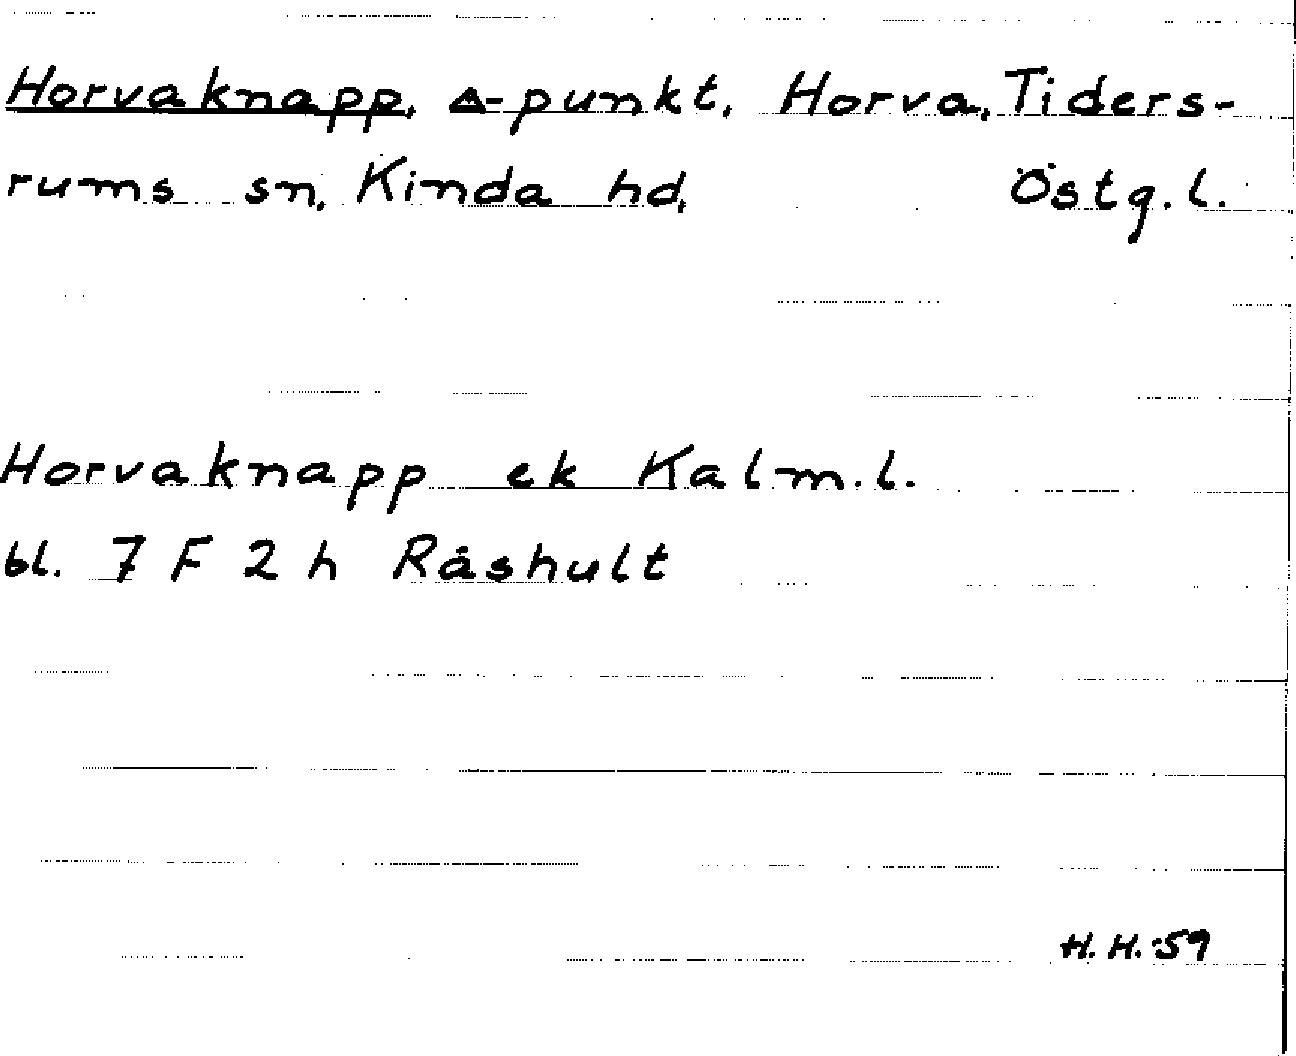 Horvaknapp, △-punkt, Horva, Tiders-
rums sn, Kinda hd,   Östg.l.
Horvaknapp ek Kalm.l.
bl. 7 F 2 h Råshult
H.H.-59